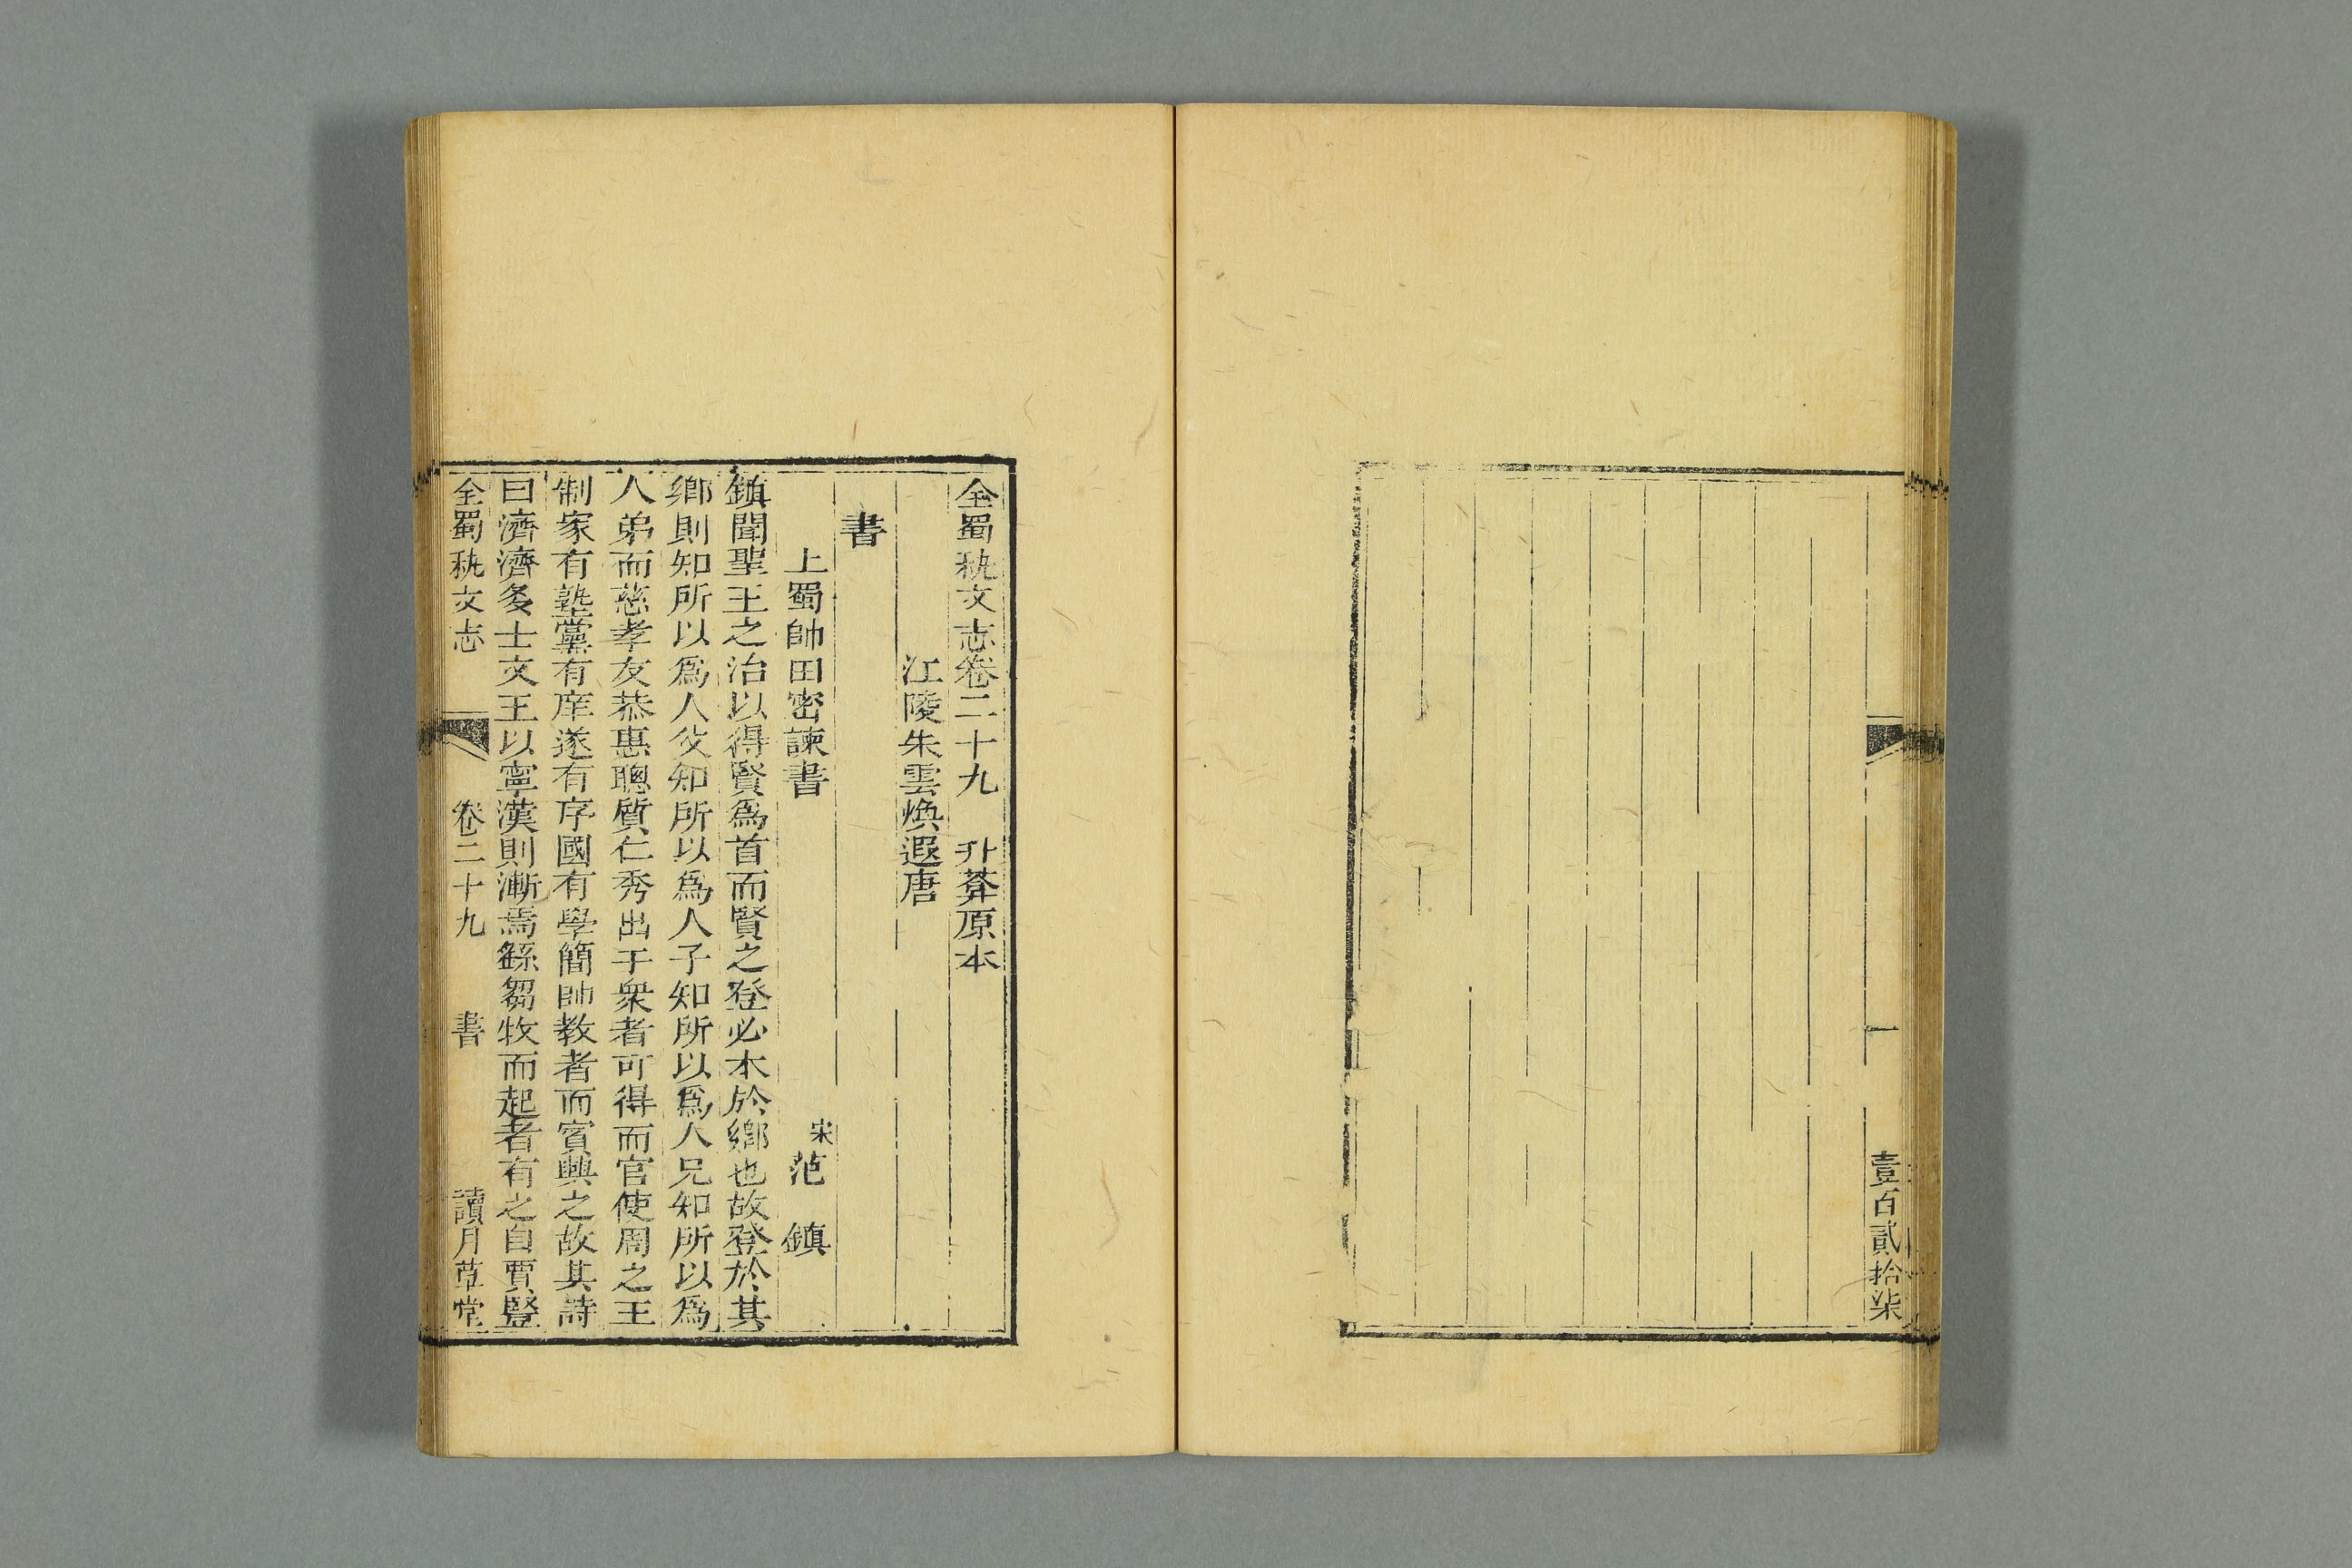 一 壹百貳拾柒
全蜀秇文志卷二十九 升菴原本
江陵朱雲煥遐唐
書
上蜀帥田密諫書 宋范鎮
鎮聞聖王之治以得賢爲首而賢之登必本於鄉也故登於其
鄉則知所以爲人父知所以爲人子知所以爲人兄知所以爲
人弟而慈孝友恭惠聰質仁秀出于衆者可得而官使周之王
制家有塾黨有庠遂有序國有學簡帥教者而賓興之故其詩
曰濟濟多士文王以寧漢則漸焉繇芻牧而起者有之自賈豎
全蜀秇文志 卷二十九 書 讀月草堂